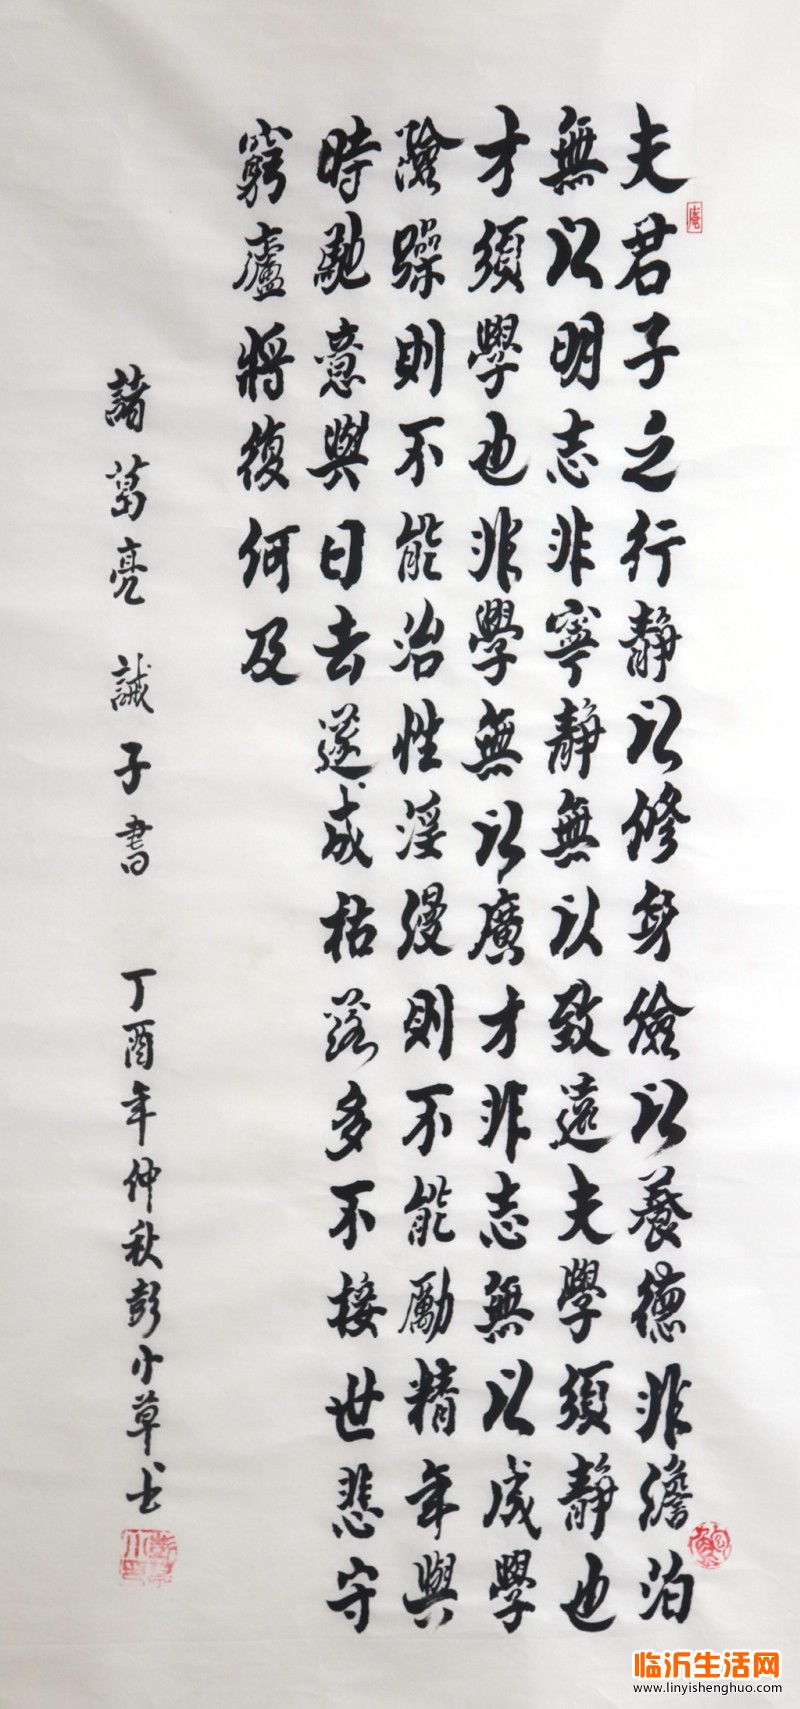 夫君子之行靜以修身儉以養德非澹泊
無以明志非寧靜無以致遠夫學須靜也
才須學也非學無以廣才非志無以成學
險躁則不能治性淫慢則不能勵精年與
時馳意與日去遂成枯落多不接世悲守
窮廬將復何及
諸葛亮 誡子書 丁酉年仲秋彭小草书
临沂生活网
www.linyishenghuo.com